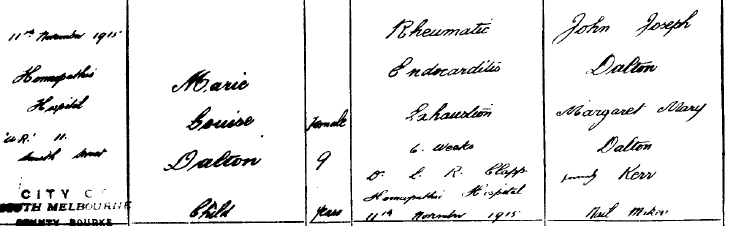 11th November 1915
Homeopathic
Hospital
CITY OF
SOUTH MELBOURNE
COUNTY BOURKE
Marie
Louise
Dalton
Child
female
9
years
Rheumatic
Endocarditis
Exhaustion
6 weeks
Dr L. R. Clapp
Homeopathic Hospital
11th November 1915
John Joseph
Dalton
Margaret Mary
Dalton
formerly Kerr